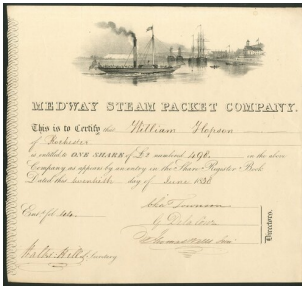 MEDWAY STEAM PACKET COMPANY.
This is to Certify that William Hopson
of Rochester
is entitled to ONE SHARE of £ numbered 498 in the above
Company as appears by an entry in the Share Register Book
Dated this twentieth day of June 1838
Townson
Thomas Wells
Directors.